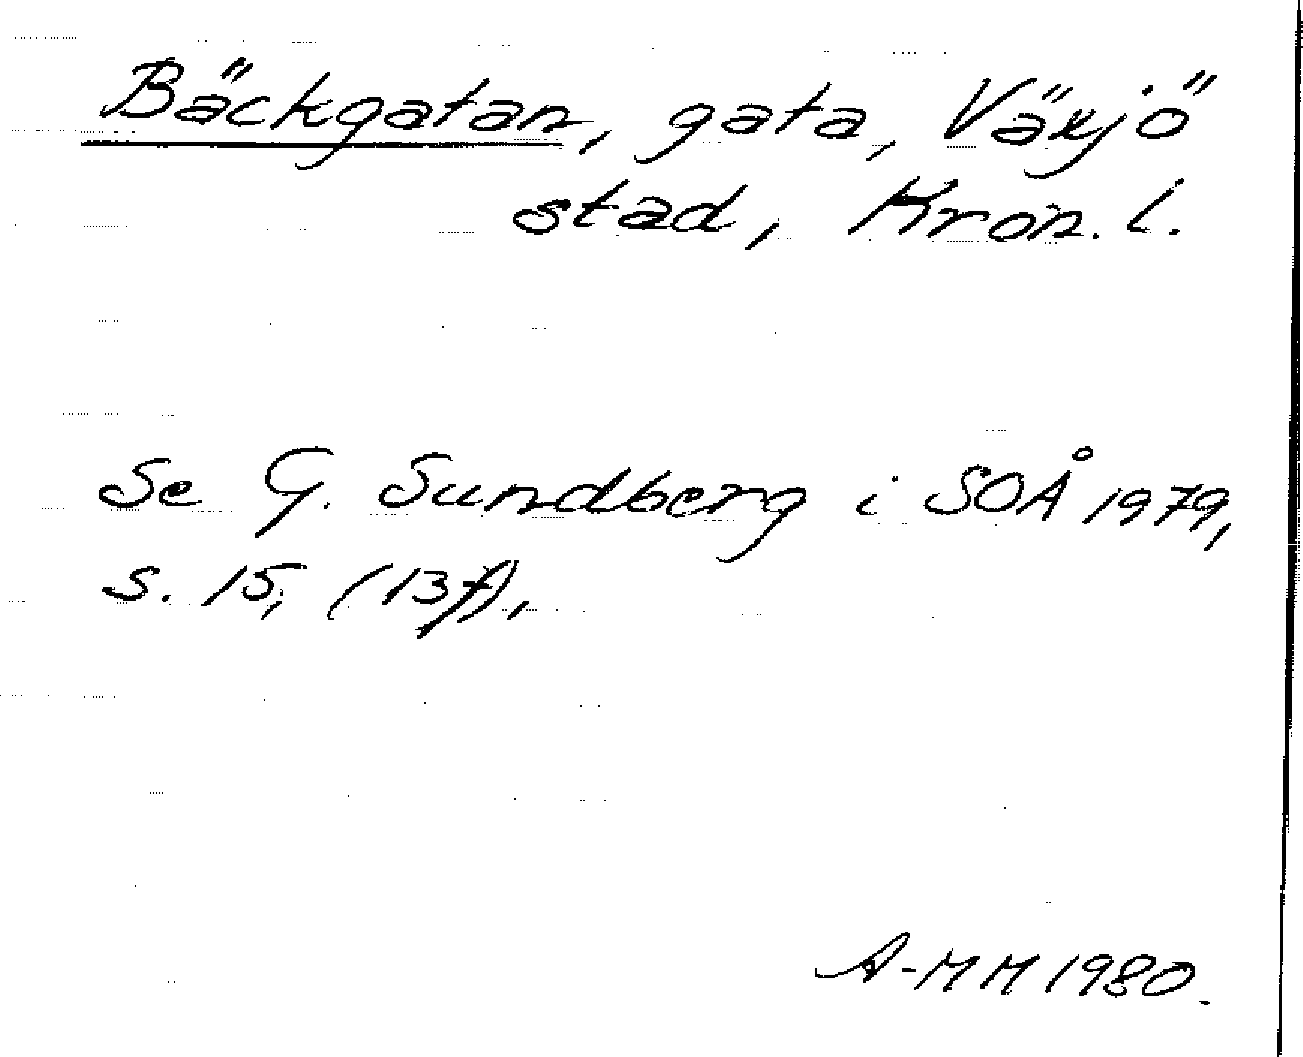 Bäckgatan, gata, Växjö
stad, Kron. l.
Se G. Sundberg i SOÅ 1979,
s. 15, (13f),
A-MM 1980.